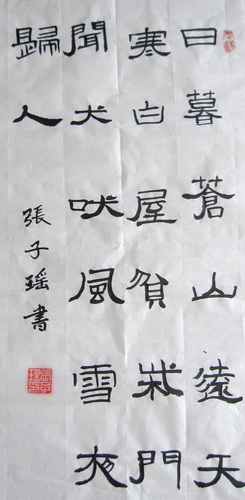 日暮蒼山遠天
寒白屋貧柴門
聞犬吠風雪夜
歸人
張子瑶書